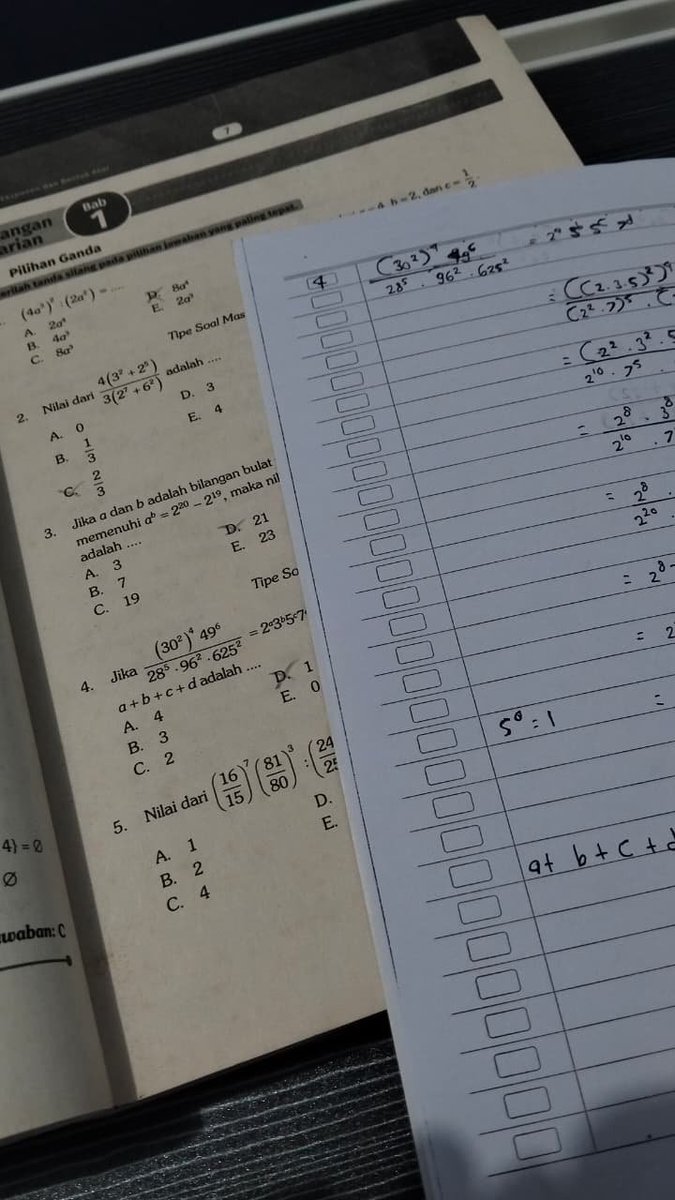 7
Bab
1
Pilihan Ganda
tanda silang pada pilihan jawaban yang paling tepat.
b = 2, dan c = 1/2
A. 2a⁴
B. 4a³
C. 8a³
D. 8a⁴
E. 2a³
Tipe Soal Mas
2. Nilai dari 4(3² + 2⁵) / 3(2² + 6²) adalah ....
A. 0
B. 1/3
C. 2/3
D. 3
E. 4
3. Jika a dan b adalah bilangan bulat
memenuhi aᵇ = 2²⁰ − 2¹⁹, maka nil
adalah ....
A. 3
B. 7
C. 19
D. 21
E. 23
Tipe So
4. Jika (30²)⁴ 49⁶ / 28⁵ · 96² · 625² = 2ᵃ3ᵇ5ᶜ7
a + b + c + d adalah ....
A. 4
B. 3
C. 2
D. 1
E. 0
5. Nilai dari (16/15)⁷ (81/80)³ : (24/25
A. 1
B. 2
C. 4
D.
E.
4} = ∅
∅
waban: C
4
(30²)⁴ 49⁶ / 28⁵ · 96² · 625²
= ((2.3.5)²)⁴ / (2².7)⁵ . (
= (2².3².5 / 2¹⁰ . 7⁵ .
= 2⁸ . 3⁸ / 2¹⁰ . 7
= 2⁸ . / 2²⁰ .
= 2⁸⁻
= 2
5⁰ = 1 =
a + b + c + d